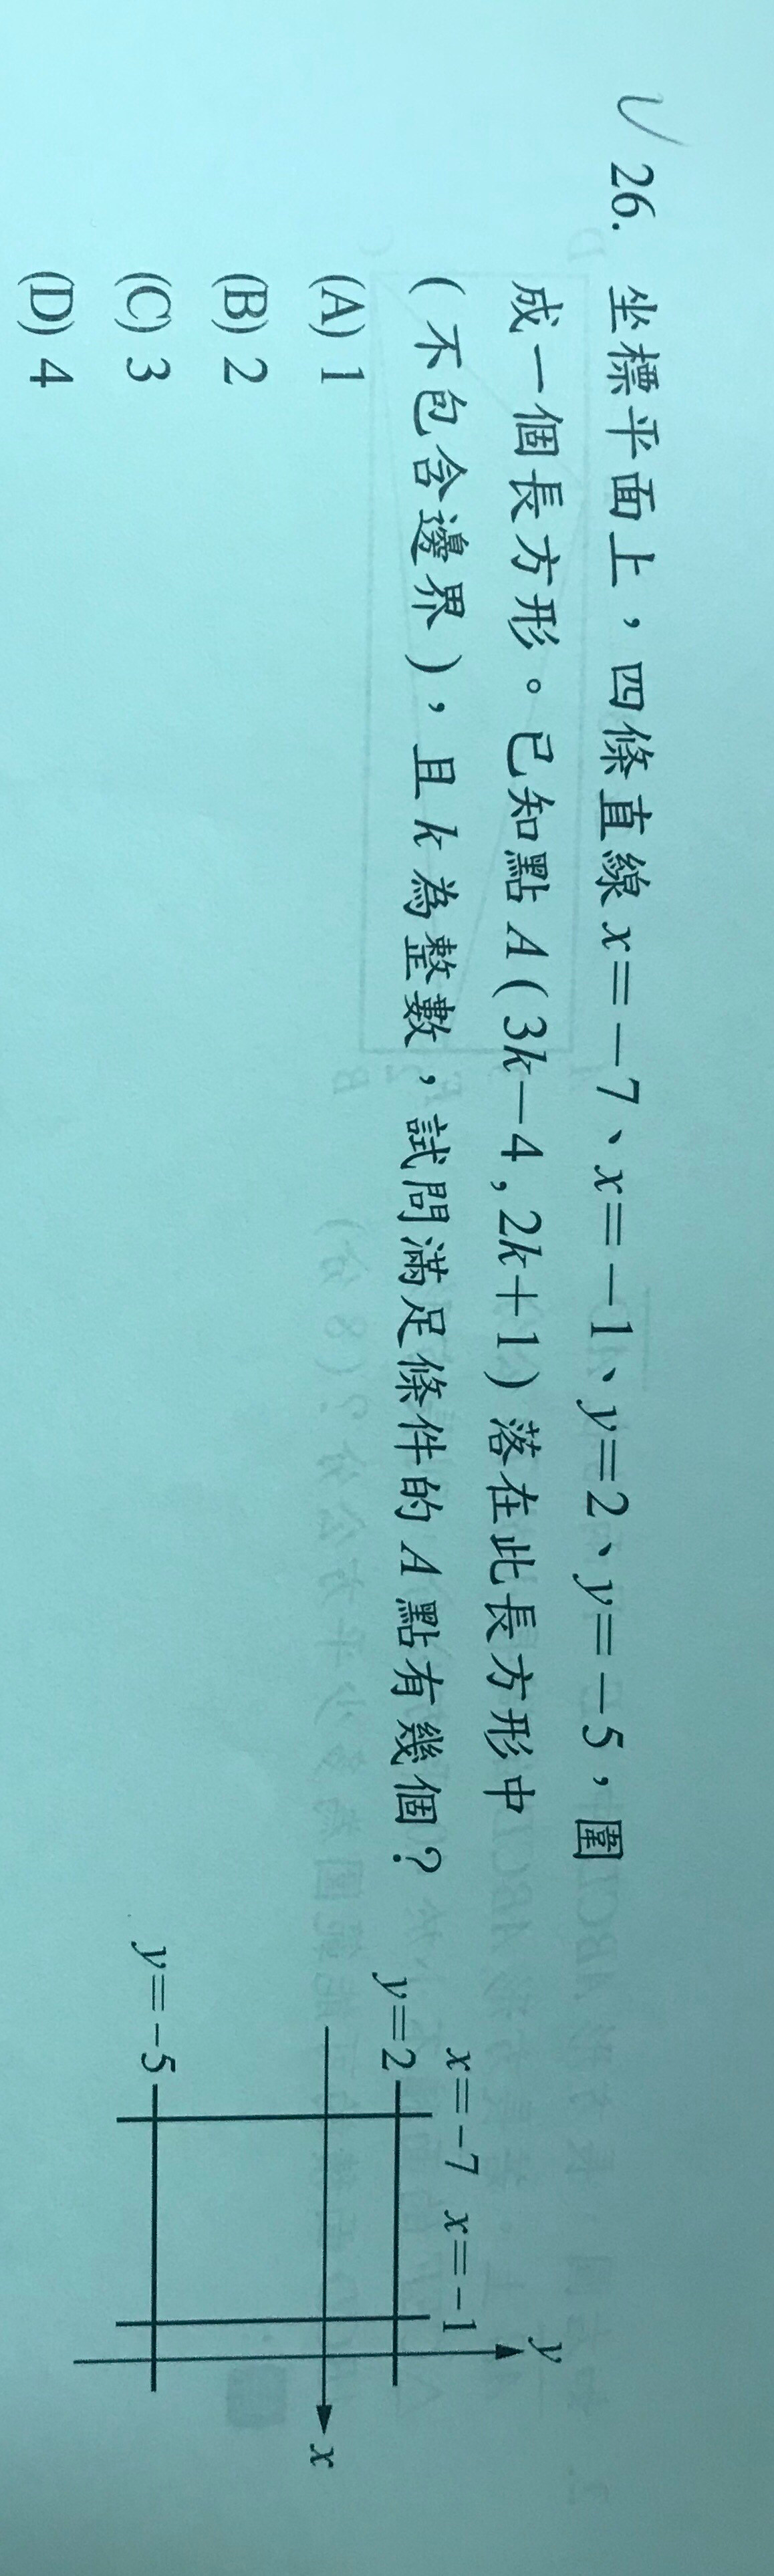 26. 坐標平面上，四條直線x=-7、x=-1、y=2、y=-5，圍
成一個長方形。已知點A(3k-4,2k+1)落在此長方形中
(不包含邊界)，且k為整數，試問滿足條件的A點有幾個？
(A) 1
(B) 2
(C) 3
(D) 4
x=-7 x=-1
y
y=2
x
y=-5